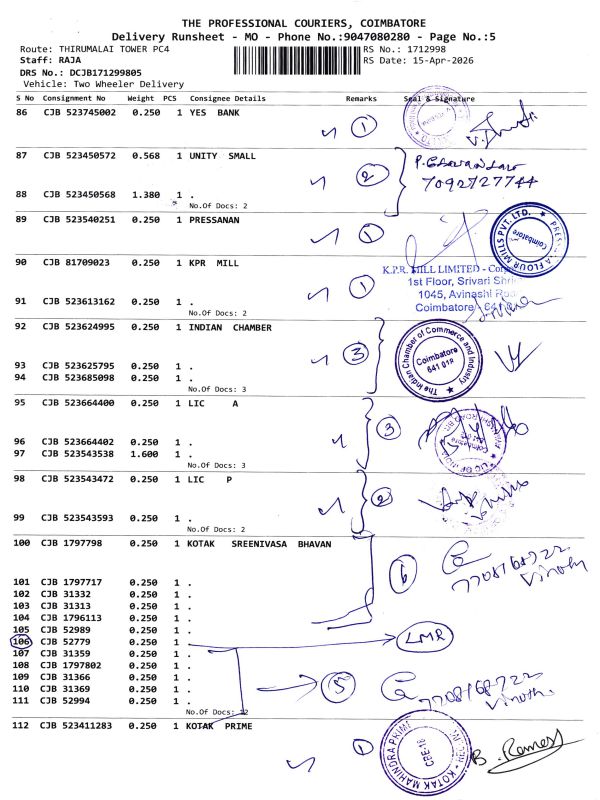 THE PROFESSIONAL COURIERS, COIMBATORE
Delivery Runsheet - MO - Phone No.:9047080280 - Page No.:5
Route: THIRUMALAI TOWER PC4 RS No.: 1712998
Staff: RAJA RS Date: 15-Apr-2026
DRS No.: DCJB171299805
Vehicle: Two Wheeler Delivery
S No Consignment No Weight PCS Consignee Details Remarks Seal & Signature
86 CJB 523745002 0.250 1 YES BANK
1
87 CJB 523450572 0.568 1 UNITY SMALL
2
7092727744
88 CJB 523450568 1.380 1 .
No.Of Docs: 2
89 CJB 523540251 0.250 1 PRESSANAN
1
FLOUR MILLS PVT. LTD.
Coimbatore
90 CJB 81709023 0.250 1 KPR MILL
1
K.P.R. MILL LIMITED
1st Floor, Srivari
1045, Avinashi
Coimbatore
91 CJB 523613162 0.250 1 .
No.Of Docs: 2
92 CJB 523624995 0.250 1 INDIAN CHAMBER
3
The Indian Chamber of Commerce and Industry
Coimbatore
641 018
93 CJB 523625795 0.250 1 .
94 CJB 523685098 0.250 1 .
No.Of Docs: 3
95 CJB 523664400 0.250 1 LIC A
3
96 CJB 523664402 0.250 1 .
97 CJB 523543538 1.600 1 .
No.Of Docs: 3
98 CJB 523543472 0.250 1 LIC P
2
99 CJB 523543593 0.250 1 .
No.Of Docs: 2
100 CJB 1797798 0.250 1 KOTAK SREENIVASA BHAVAN
6
7708168722
Vinoth
101 CJB 1797717 0.250 1 .
102 CJB 31332 0.250 1 .
103 CJB 31313 0.250 1 .
104 CJB 1796113 0.250 1 .
105 CJB 52989 0.250 1 .
106 CJB 52779 0.250 1 . LMR
107 CJB 31359 0.250 1 .
108 CJB 1797802 0.250 1 .
109 CJB 31366 0.250 1 .
5
7708168722
Vinoth
110 CJB 31369 0.250 1 .
111 CJB 52994 0.250 1 .
No.Of Docs: 12
112 CJB 523411283 0.250 1 KOTAK PRIME
1
KOTAK MAHINDRA PRIME
CBE-18
B. Ramesh